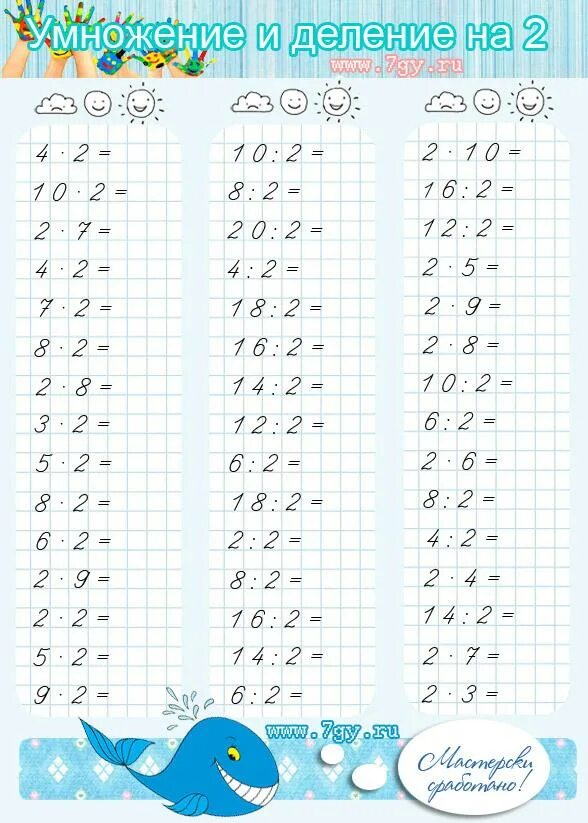 Умножение и деление на 2
www.7gy.ru
4 · 2 =
10 · 2 =
2 · 7 =
4 · 2 =
7 · 2 =
8 · 2 =
2 · 8 =
3 · 2 =
5 · 2 =
8 · 2 =
6 · 2 =
2 · 9 =
2 · 2 =
5 · 2 =
9 · 2 =
10 : 2 =
8 : 2 =
20 : 2 =
4 : 2 =
18 : 2 =
16 : 2 =
14 : 2 =
12 : 2 =
6 : 2 =
18 : 2 =
2 : 2 =
8 : 2 =
16 : 2 =
14 : 2 =
6 : 2 =
2 · 10 =
16 : 2 =
12 : 2 =
2 · 5 =
2 · 9 =
2 · 8 =
10 : 2 =
6 : 2 =
2 · 6 =
8 : 2 =
4 : 2 =
2 · 4 =
14 : 2 =
2 · 7 =
2 · 3 =
www.7gy.ru
Мастерски
сработано!